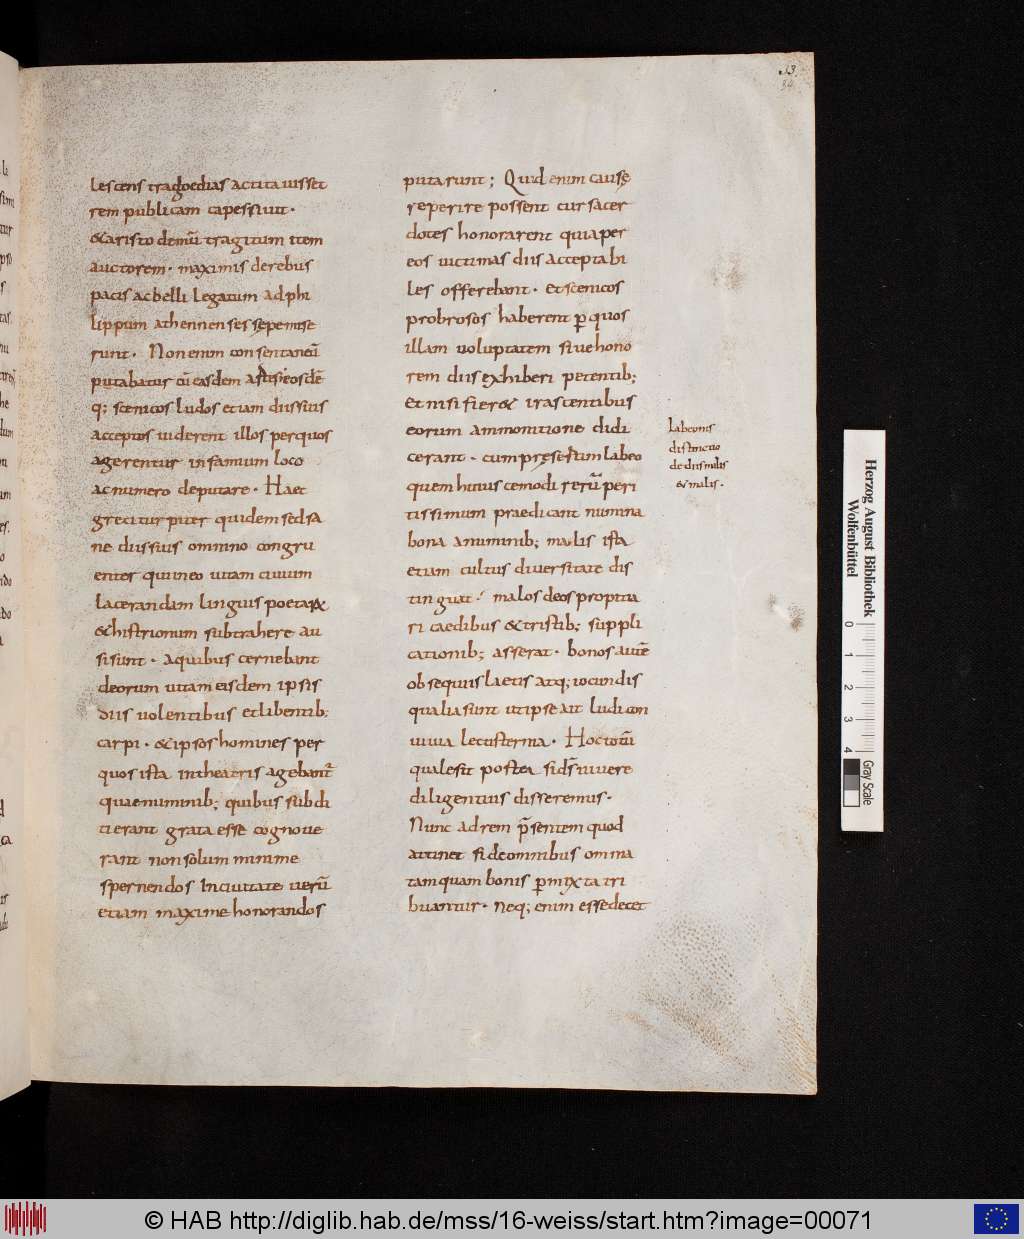 33
34
lescens tragoedias actitauisset
rem publicam capessiuit·
&aristo demū tragitum item
auctorem· maximis derebus
pacis acbelli legatum adphi
lippum athennenses sępemise
runt· Non enim consentaneū
putabatur cū easdem
q; scenicos ludos etiam diis suis
acceptos uiderent illos perquos
agerentur infamium loco
acnumero deputare· Haec
greci turpiter quidem sedsa
ne diis suis omnino congru
enter quineo uitam ciuium
lacerandam linguis poetarū
&histrionum subtrahere au
sisunt· aquibus cernebant
deorum uitam eisdem ipsis
diis uolentibus etlibentib;
carpi· &ipsos homines per
quos ista intheatris agebant̄
quaenuminib; quibus subdi
ti erant grata esse cognoue
rant non solum minime
spernendos inciuitate uerū
etiam maxime honorandos
putarunt; Quid enim causę
reperire possent cur sacer
dotes honorarent quiaper
eos uictimas diis acceptabi
les offerebant· etscenicos
probrosos haberent ꝑ quos
illam uoluptatem siue hono
rem diis exhiberi petentib;
et nisi fier& irascentibus
eorum ammonitione didi
cerant· cum presertim labeo
quem huiuscemodi rerū peri
tissimum praedicant numina
bona anuminib; malis ista
etiam cultus diuersitate dis
tinguat· malos deos propitia
ri caedibus &tristib; suppli
cationib; asserat· bonos autē
obsequiis laetis atq; iocundis
qualia sunt ut ipse ait ludi con
uiuia lectisternia· Hoc totū
quale sit postea si d̄s iuuere
diligentius disseremus·
Nunc ad rem p̄sentem quod
attinet siue omnibus omnia
tamquam bonis ꝑmixta tri
buantur· neq; enim esse decet
Labeonis
distinctio
de diis milis
& malis·
Herzog August Bibliothek
Wolfenbüttel
0 1 2 3 4
Gray Scale
© HAB http://diglib.hab.de/mss/16-weiss/start.htm?image=00071